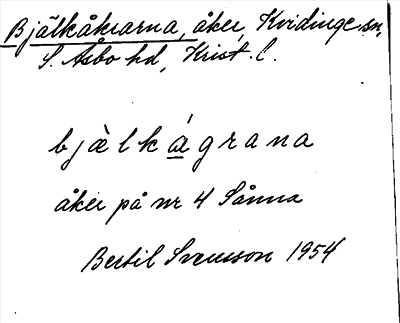 Bjälkåkrarna, åker, Kvidinge sn,
S. Åsbo hd, Krist. l.
bjàlkágrana
åker på nr 4 Sånna
Bertil Svensson 1954